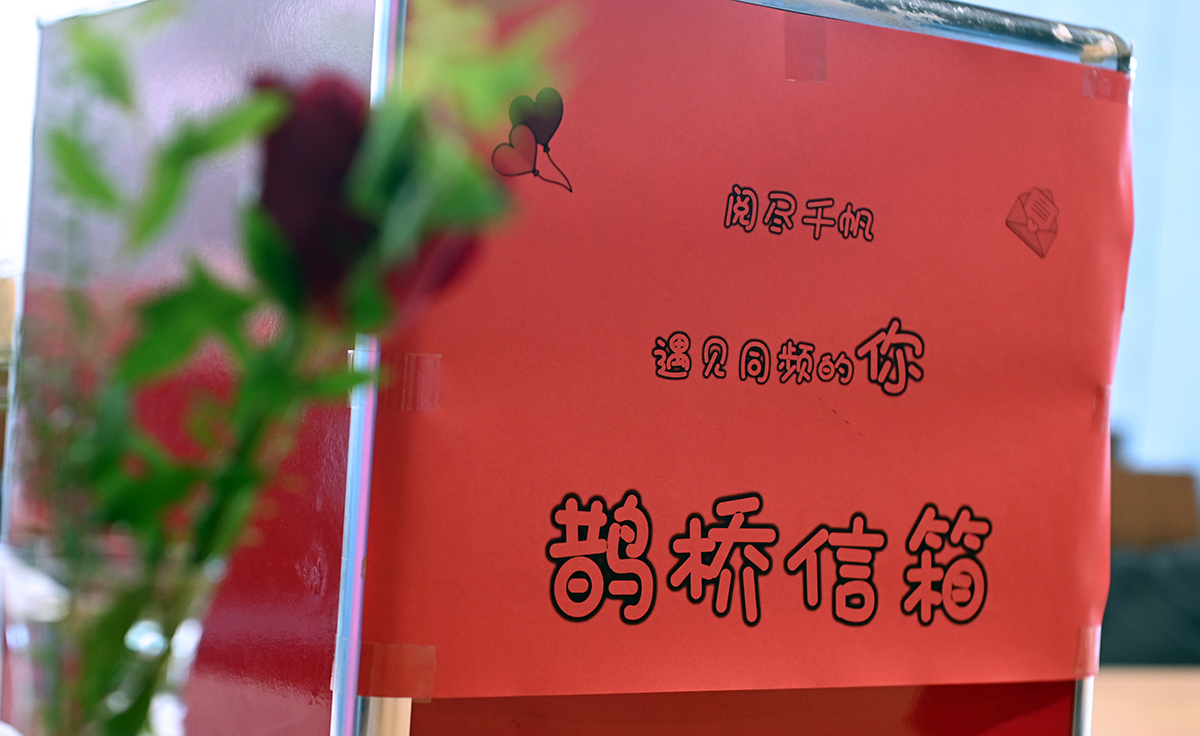 阅尽千帆
遇见同频的你
鹊桥信箱